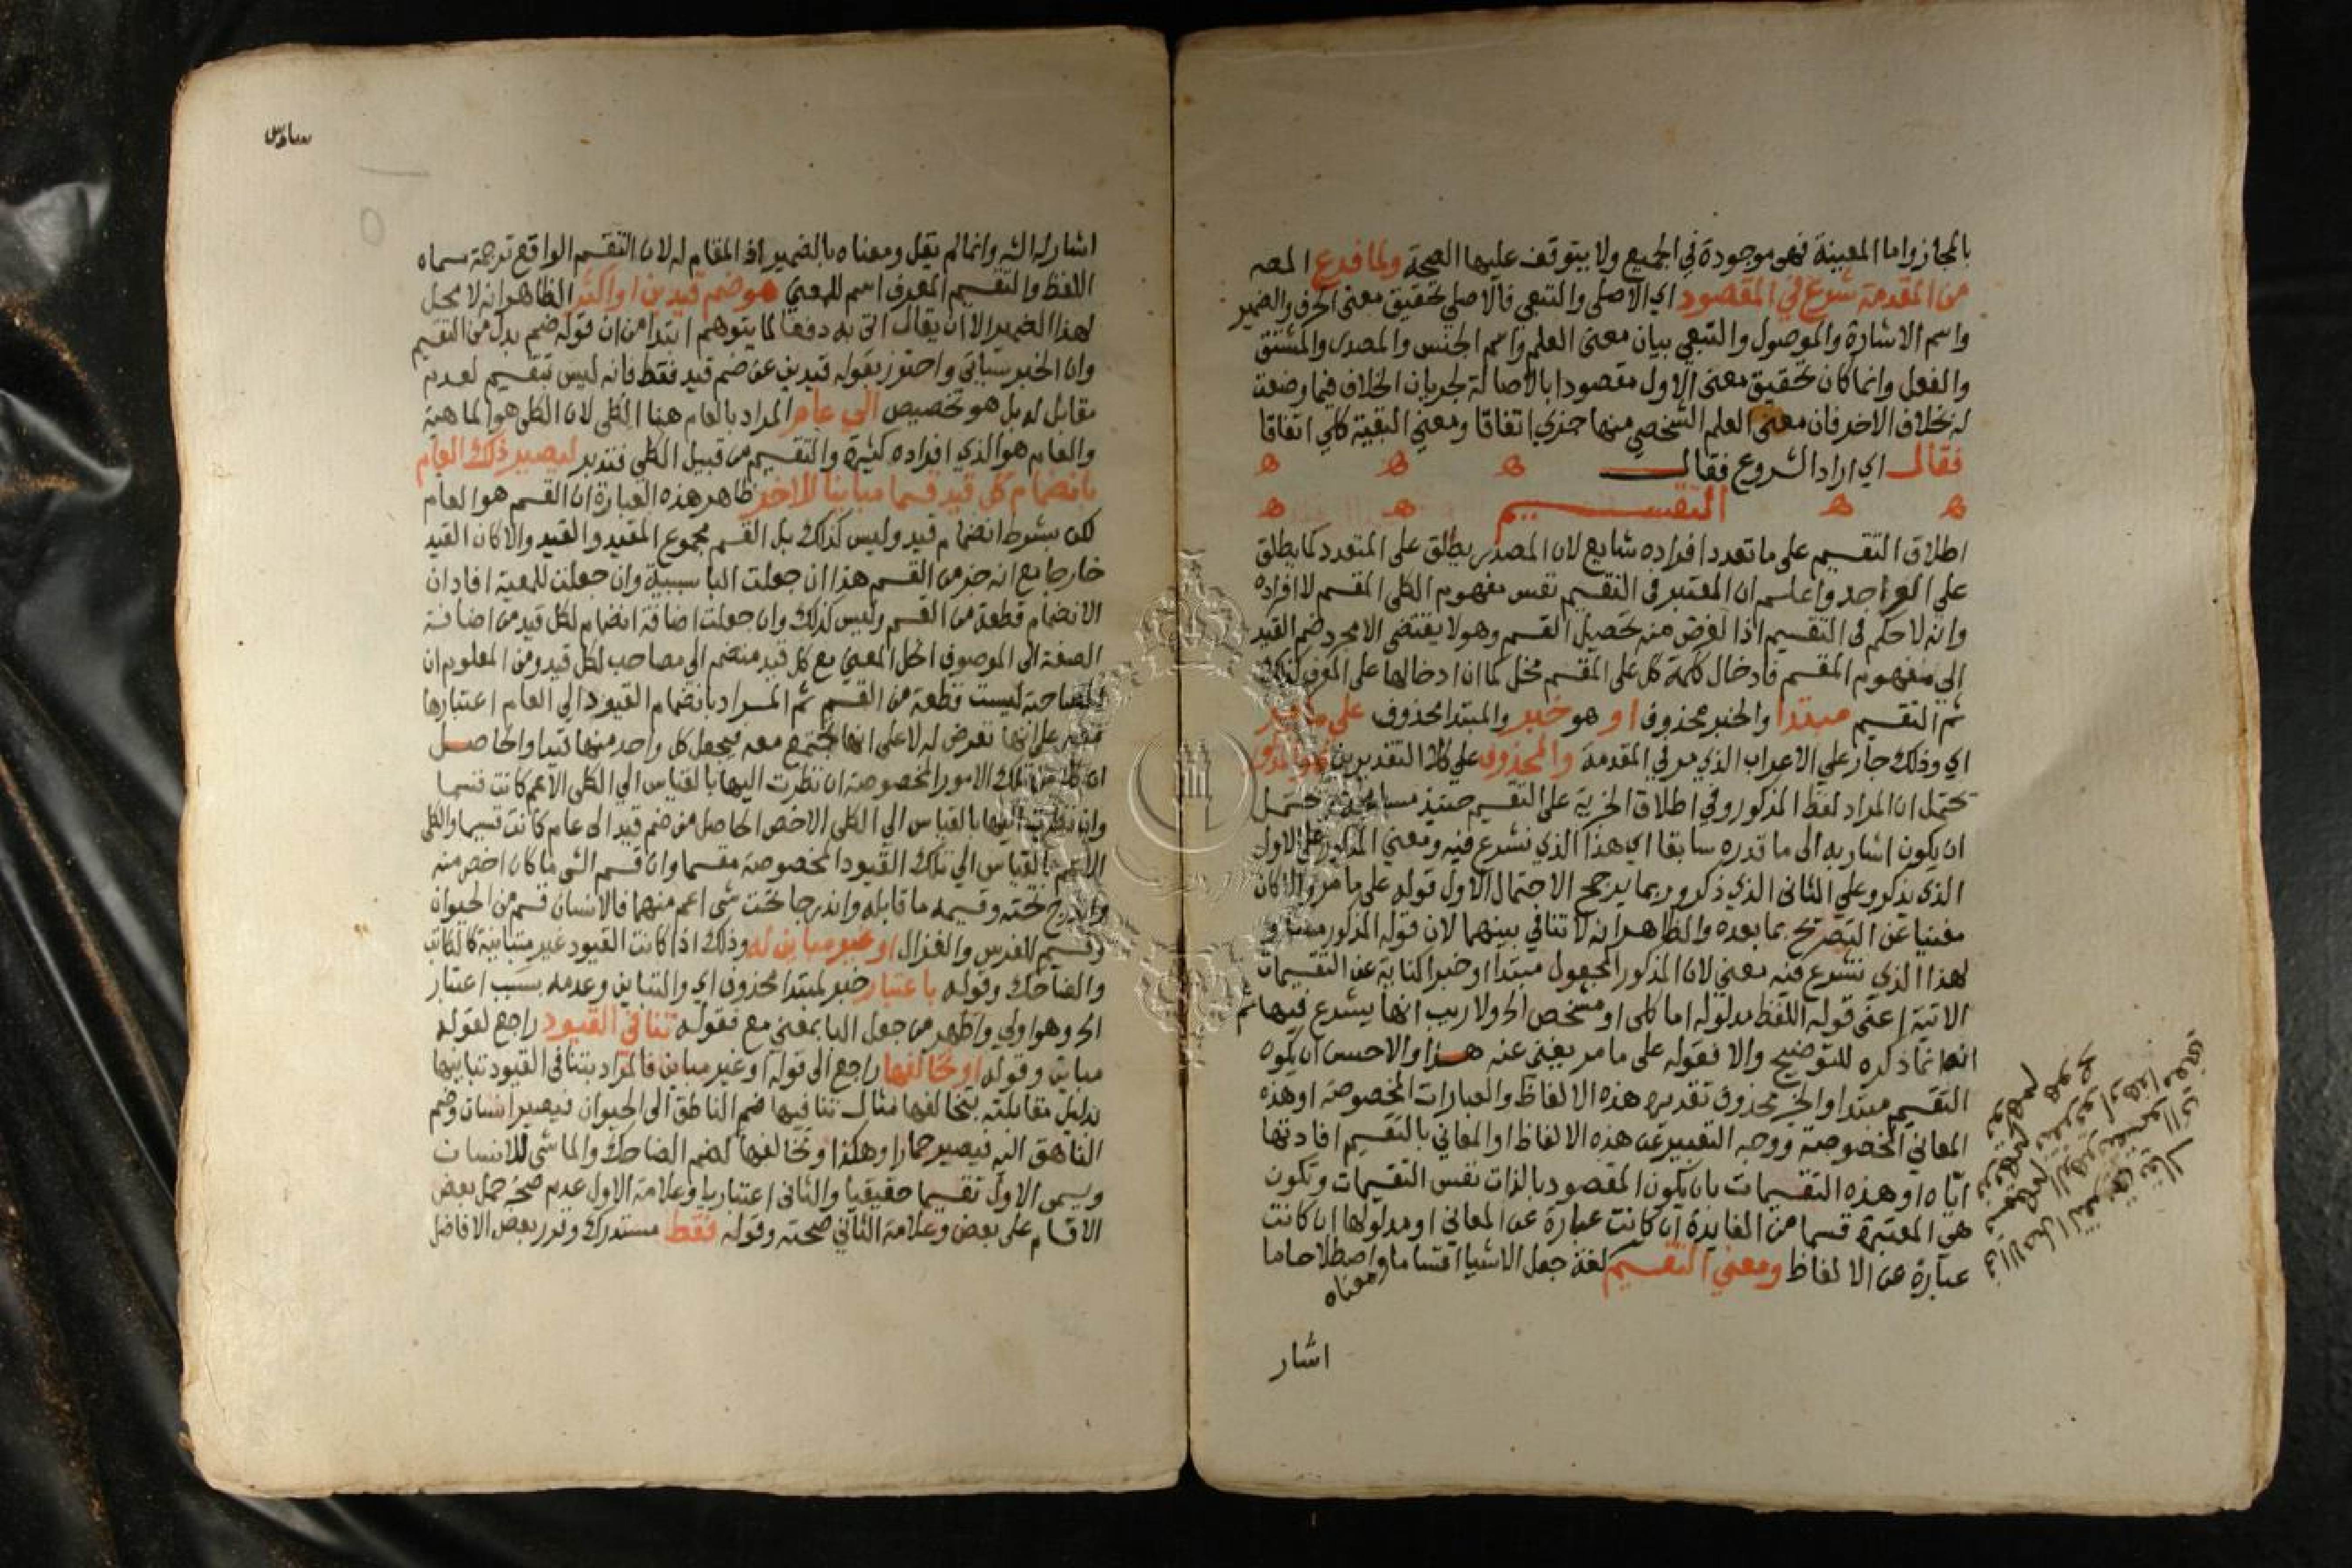 بالمجاز واما المعينة فهى موجودة في الجميع ولا يتوقف عليها الصحة ولما فرغ المصـ
من المقدمة شرع في المقصود اي الاصلى والتبعى فالاصلي تحقيق معنى الحرف والضمير
واسم الاشارة والموصول والتبعي بيان معنى العلم واسم الجنس والمصدر والمشتق
والفعل وانما كان تحقيق معنى الاول مقصودا بالاصالة لجريان الخلاف فيما وضعت
له بخلاف الاخر فان معنى العلم الشخصي منها جزي اتفاقا ومعنى البقية كلي اتفاقا
فقال اي اراد الشروع فقال
التقسيم
اطلاق التقسيم على ما تعدد افراده شايع لان المصدر يطلق على المتعدد كما يطلق
على الواحد واعلم ان المعتبر فى التقسيم نفس مفهوم الكلى المقسم لا افراده
وانه لا حكم فى التقسيم اذا لغرض منه تحصيل القسم وهو لا يقتضى الا مجرد ضم القيد
الي مفهوم المقسم فادخال كلمة كل على المقسم مخل كما ان ادخالها على المعرف كذلك
ثم التقسيم مبتدا والخبر محذوف او هو خبر والمبتدا محذوف علي ما مر
اي وذلك جار علي الاعراب الذي مر في المقدمة والمحذوف علي كلا التقديرين هو المذكور
يحتمل ان المراد لفظ المذكور وفي اطلاق الخبرية على التقسيم حينيذ مسامحة ويحتمل
ان يكون اشار به الى ما قدره سابقا اي هذا الذي نشرع فيه ومعني المذكور على الاول
الذي يذكر وعلي الثاني الذي ذكر وربما يرجح الاحتمال الاول قوله على ما مر والا كان
مغنيا عن التصريح بما بعده والظاهر انه لا تنافي بينهما لان قوله المذكور مساو
لهذا الذي نشرع فيه معني لان المذكور المجعول مبتدا او خبرا كناية عن التقسيمات
الاتية اعنى قوله اللفظ مدلوله اما كلى او مشخص الخ ولا ريب انها يشرع فيها ثم
انه انما ذكره للتوضيح والا فقوله على ما مر يغنى عنه هذا والاحسن ان يكون
التقسيم مبتدا والخبر محذوف تقديره هذه الالفاظ والعبارات المخصوصة او هذه
المعاني المخصوصة ووجه التعبير عن هذه الالفاظ او المعاني بالتقسيم افادتها
اياه او هذه التقسيمات بان يكون المقصود بالذات نفس التقسيمات وتكون
هي المعتبرة قسما من الفايدة ان كانت عبارة عن المعاني او مدلولها ان كانت
عبارة عن الالفاظ ومعني التقسيم لغة جعل الاشيا اقساما واصطلاحا ما
معناه
اشار
سادس
اشار له الش وانما لم يقل ومعناه بالضمير اذ المقام له لان التقسيم الواقع ترجمة مسماه
اللفظ والتقسيم المعرف اسم للمعني هو ضم قيدين او اكثر الظاهر انه لا محل
لهذا الضمير الا ان يقال اتى به دفعا لما يتوهم ابتدا من ان قوله ضم بدل من التقسيم
وان الخبر سياتي واحترز بقوله قيدين عن ضم قيد فقط فانه ليس تقسيم لعدم
مقابل له بل هو تخصيص الي عام المراد بالعام هنا الكلى لان الكلى هو الماهية
والعام هو الذي افراده كثيرة والتقسيم من قبيل الكلى فتدبر ليصير ذلك العام
بانضمام كل قيد قسما مباينا للاخر ظاهر هذه العبارة ان القسم هو العام
لكن بشرط انضمام قيد وليس كذلك بل القسم مجموع المقيد والقيد والا كان القيد
خارجا مع انه جز من القسم هذا ان جعلت البا سببية وان جعلت للمعية افاد ان
الانضمام قطعة من القسم وليس كذلك وان جعلت اضافة انضمام لكل قيد من اضافة
الصفة الى الموصوف انحل المعنى مع كل قيد منضم الى مصاحب لكل قيد ومن المعلوم ان
المصاحبة ليست قطعة من القسم ثم المراد بانضمام القيود الي العام اعتبارها
معه على انها تعرض له لا على انها تجتمع معه فيجعل كل واحد منها قيدا والحاصل
ان تلك الامور المخصوصة ان نظرت اليها بالقياس الي الكلى الاعم كانت قسما
وان نظرت اليها بالقياس الي الكلى الاخص الحاصل من ضم قيد الى عام كانت قسيما والكلى
الاعم بالقياس الي تلك القيود المخصوصة مقسما وان قسم الشى ما كان اخص منه
واندرج تحته وقسيمه ما قابله واندرجا تحت شى اعم منهما فالانسان قسم من الحيوان
وقسيم للفرس والغزال او غير مباين له وذلك اذا كانت القيود غير متباينة كالكاتب
والضاحك وقوله باعتبار خبر لمبتدا محذوف اي والتباين وعدمه بسبب اعتبار
الخ وهو اولي واظهر من جعل البا بمعني مع فقوله تنافي القيود راجع لقوله
مباين وقوله او تخالفها راجع الى قوله او غير مباين فالمراد بتنافى القيود تباينها
بدليل مقابلته بتخالفها مثال تنافيها ضم الناطق الى الحيوان فيصير انسان وضم
الناهق اليه فيصير حمارا وهكذا وتخالفها لضم الضاحك والماشي للانسان
ويسمى الاول تقسيما حقيقيا والثانى اعتباريا وعلامة الاول عدم صحة حمل بعض
الاقسام على بعض وعلامة الثاني صحته وقوله فقط مستدرك وقرر بعض الافاضل